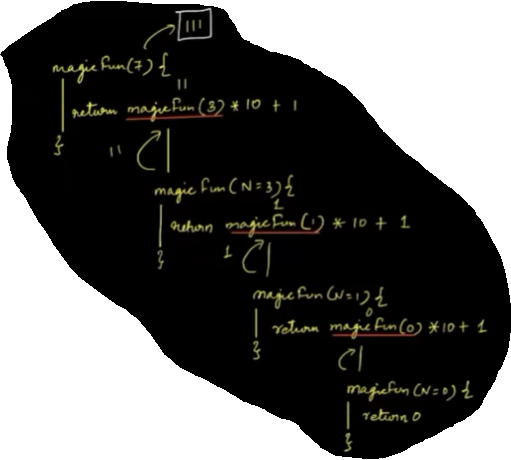 111
magicfun(7) {
11
return magicfun(3) * 10 + 1
}
11
magicfun(N=3) {
1
return magicfun(1) * 10 + 1
}
1
magicfun(N=1) {
0
return magicfun(0) * 10 + 1
}
magicfun(N=0) {
return 0
}